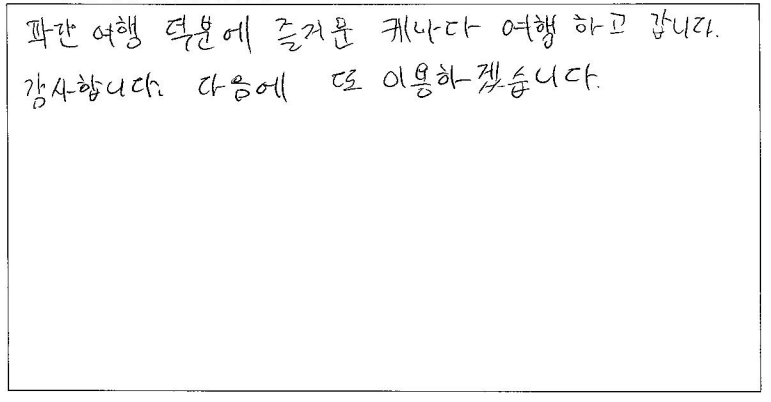 파란 여행 덕분에 즐거운 캐나다 여행 하고 갑니다.
감사합니다. 다음에 또 이용하겠습니다.